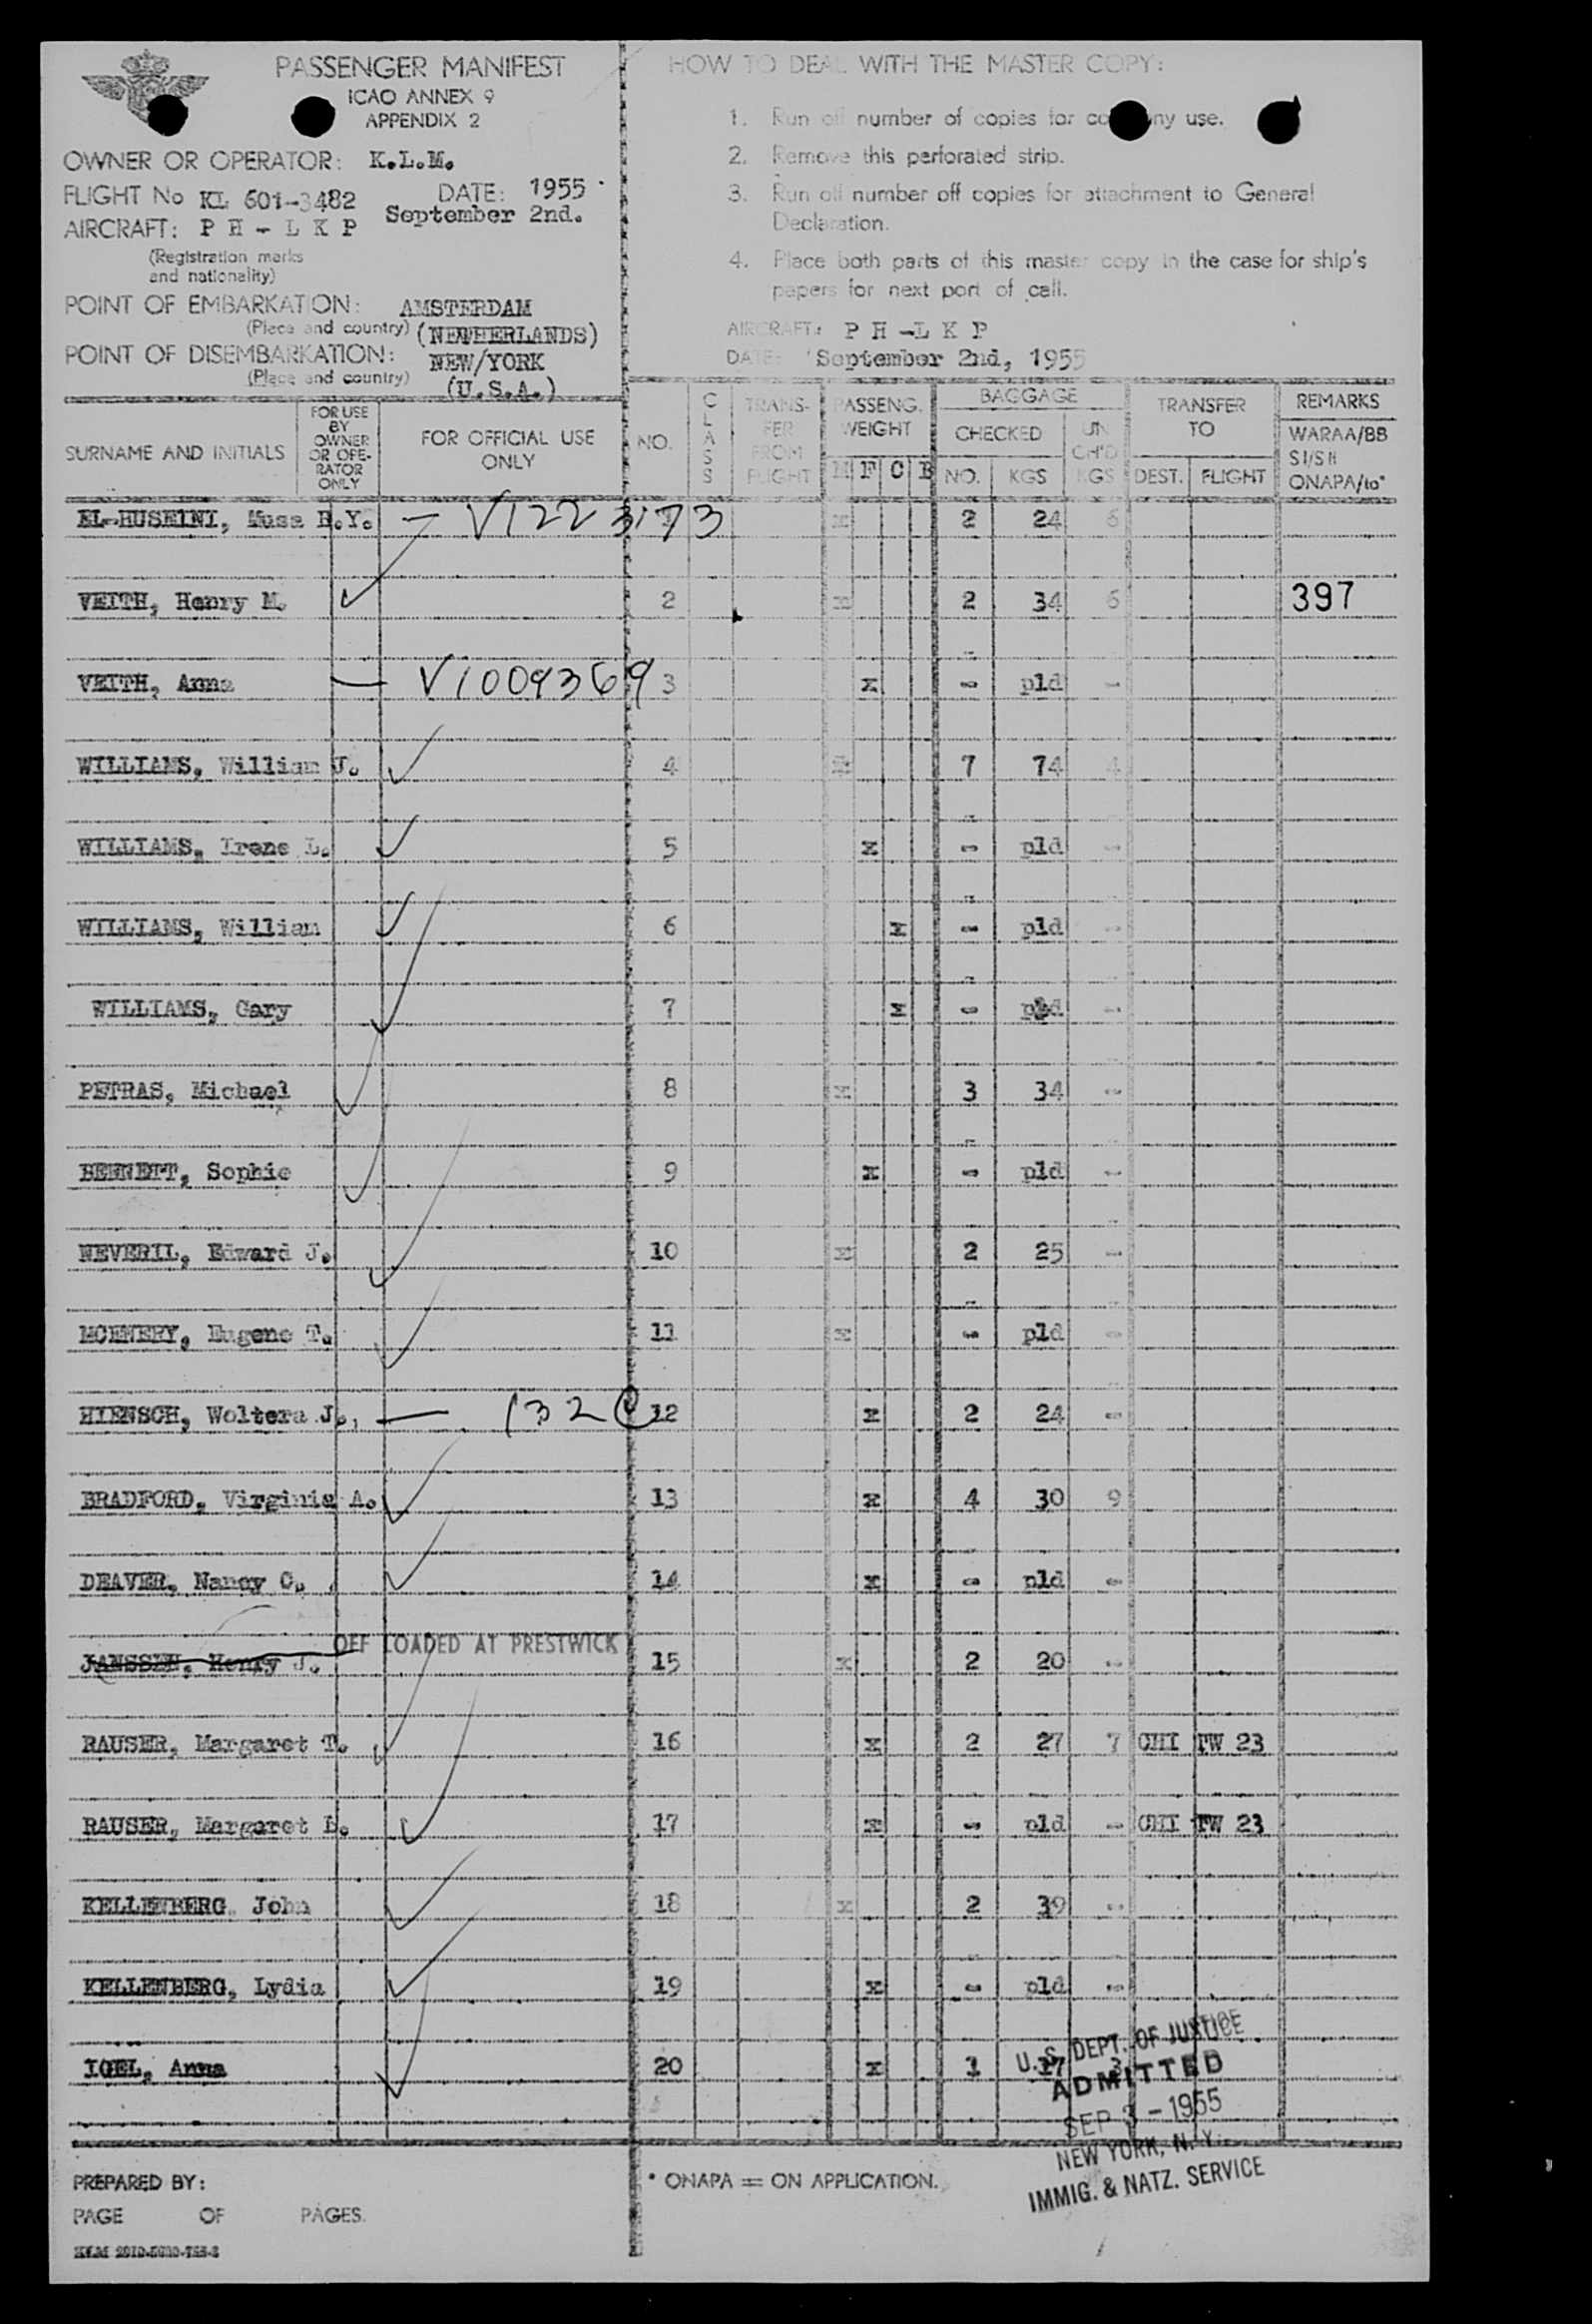 PASSENGER MANIFEST
ICAO ANNEX 9
APPENDIX 2
OWNER OR OPERATOR: K.L.M.
FLIGHT No KL 601-3482 DATE: 1955
September 2nd.
AIRCRAFT: P H - L K P
(Registration marks
and nationality)
POINT OF EMBARKATION: AMSTERDAM
(Place and country) (NETHERLANDS)
POINT OF DISEMBARKATION: NEW/YORK
(Place and country) (U.S.A.)
HOW TO DEAL WITH THE MASTER COPY:
1. Run off number of copies for company use.
2. Remove this perforated strip.
3. Run off number off copies for attachment to General
Declaration.
4. Place both parts of this master copy in the case for ship's
papers for next port of call.
AIRCRAFT: P H -L K P
DATE: September 2nd, 1955
SURNAME AND INITIALS
FOR USE
BY
OWNER
OR OPE-
RATOR
ONLY
FOR OFFICIAL USE
ONLY
NO.
CLASS
TRANS-
FER
FROM
FLIGHT
PASSENG.
WEIGHT
M F C B
BAGGAGE
CHECKED
NO. KGS
UN
CH'D
KGS
TRANSFER
TO
DEST. FLIGHT
REMARKS
WARAA/BB
SI/SH
ONAPA/to*
EL-HUSEINI, Musa B.Y. — V1223173 1 x 2 24 6
VEITH, Henry M. ✓ 2 x 2 34 6 397
VEITH, Anna — V1009369 3 x - pld -
WILLIAMS, William J. ✓ 4 x 7 74 4
WILLIAMS, Irene L. ✓ 5 x - pld -
WILLIAMS, William ✓ 6 x - pld -
WILLIAMS, Gary ✓ 7 x - pld -
PETRAS, Michael ✓ 8 x 3 34 -
BENNETT, Sophie ✓ 9 x - pld -
NEVERIL, Edward J. ✓ 10 x 2 25 -
MCENERY, Eugene T. ✓ 11 x - pld -
HIENSCH, Woltera J., — 132 12 x 2 24 -
BRADFORD, Virginia A. ✓ 13 x 4 30 9
DEAVER, Nancy C. ✓ 14 x - pld -
OFF LOADED AT PRESTWICK
JANSSEN, Henry J. 15 x 2 20 -
RAUSER, Margaret T. ✓ 16 x 2 27 7 CHI TW 23
RAUSER, Margaret L. ✓ 17 x - pld - CHI TW 23
KELLENBERG, John ✓ 18 x 2 39 -
KELLENBERG, Lydia ✓ 19 x - pld -
IGEL, Anna ✓ 20 x 1 17 3
U.S. DEPT. OF JUSTICE
ADMITTED
SEP 3 - 1955
NEW YORK, N.Y.
IMMIG. & NATZ. SERVICE
PREPARED BY:
PAGE OF PAGES.
* ONAPA = ON APPLICATION.